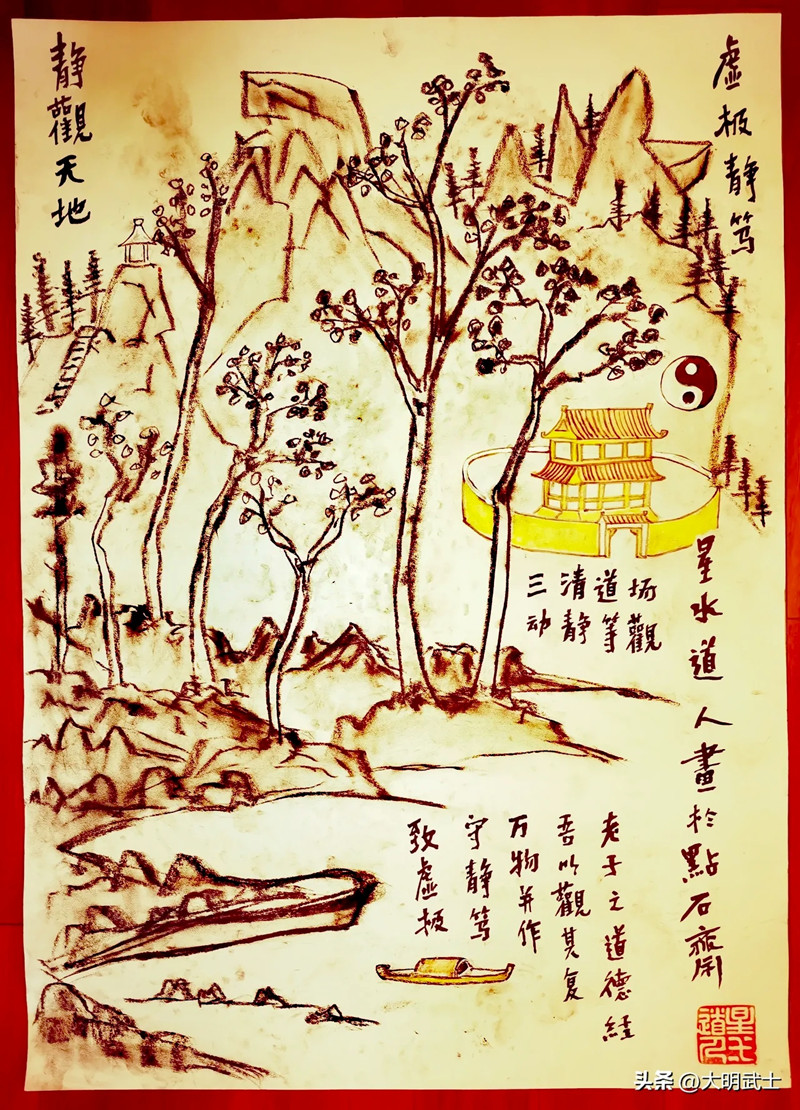 虚极静笃
静觀天地
三清道场
动静等觀
星水道人畫於點石齋
致虚极
守静笃
万物并作
吾以觀其复
老子之道德經
星水道人
头条 @大明武士